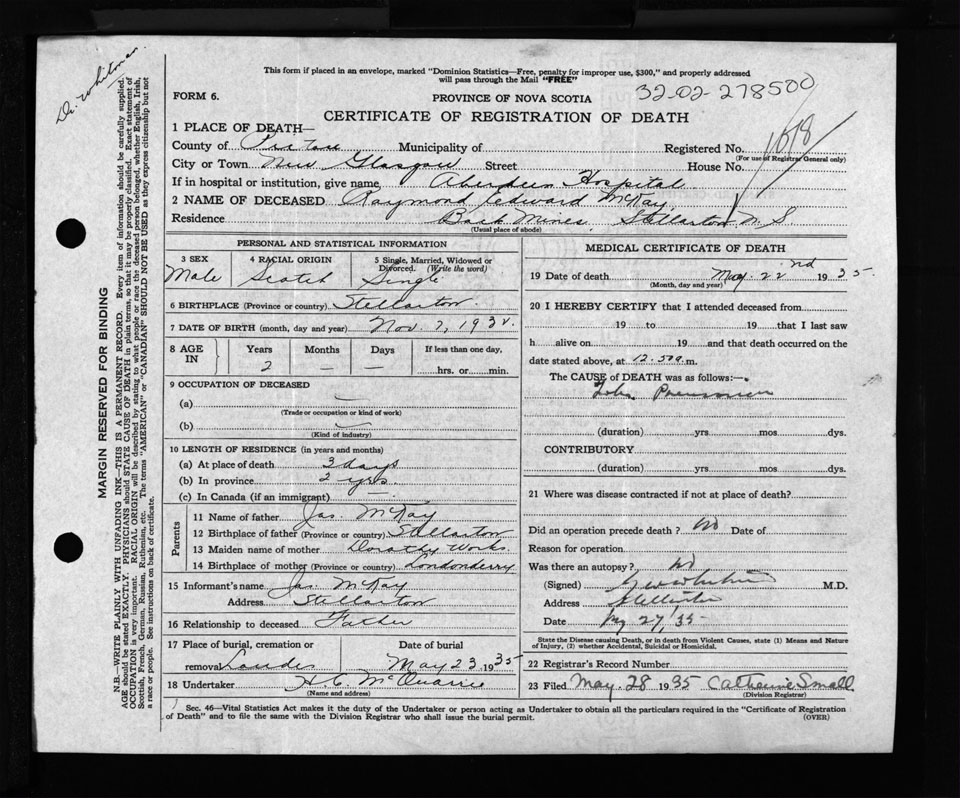 Dr. Whitman.
This form if placed in an envelope, marked "Dominion Statistics—Free, penalty for improper use, $300," and properly addressed
will pass through the Mail "FREE"
32-02-278500
FORM 6. PROVINCE OF NOVA SCOTIA
CERTIFICATE OF REGISTRATION OF DEATH
1 PLACE OF DEATH—
County of Pictou Municipality of Registered No. 1018
(For use of Registrar General only)
City or Town New Glasgow Street House No.
If in hospital or institution, give name Aberdeen Hospital
2 NAME OF DECEASED Raymond Edward McKay
Residence Mines, Stellarton N. S.
(Usual place of abode)
MARGIN RESERVED FOR BINDING
N.B.—WRITE PLAINLY WITH UNFADING INK—THIS IS A PERMANENT RECORD. Every item of information should be carefully supplied.
AGE should be stated EXACTLY. PHYSICIANS should STATE CAUSE OF DEATH in plain terms, so that it may be properly classified. Exact statement of
OCCUPATION is very important. RACIAL ORIGIN will be described by stating to what people or race the deceased person belonged, whether English, Irish,
Scottish, French, German, Russian, Ruthenian, etc. The terms "AMERICAN" or "CANADIAN" SHOULD NOT BE USED as they express citizenship but not
a race or people. See instructions on back of certificate.
PERSONAL AND STATISTICAL INFORMATION
3 SEX 4 RACIAL ORIGIN 5 Single, Married, Widowed or
Divorced. (Write the word)
Male Scotch Single
6 BIRTHPLACE (Province or country) Stellarton
7 DATE OF BIRTH (month, day and year) Nov. 7, 1932.
8 AGE IN Years Months Days If less than one day,
2 — — hrs. or min.
9 OCCUPATION OF DECEASED
(a) —
(Trade or occupation or kind of work)
(b) —
(Kind of industry)
10 LENGTH OF RESIDENCE (in years and months)
(a) At place of death 3 days
(b) In province 2 yrs.
(c) In Canada (if an immigrant) —
Parents
11 Name of father Jas. McKay
12 Birthplace of father (Province or country) Stellarton
13 Maiden name of mother Dorothy Works.
14 Birthplace of mother (Province or country) Londonderry
15 Informant's name Jas. McKay
Address Stellarton
16 Relationship to deceased Father
17 Place of burial, cremation or Date of burial
removal May 23 1935
18 Undertaker H. C. McQuarrie
(Name and address)
MEDICAL CERTIFICATE OF DEATH
19 Date of death May 22nd 1935.
(Month, day and year)
20 I HEREBY CERTIFY that I attended deceased from
19 to 19 that I last saw
h alive on 19 and that death occurred on the
date stated above, at 12.50 a. m.
The CAUSE of DEATH was as follows:—
Lobar Pneumonia
(duration) yrs mos dys.
CONTRIBUTORY
(duration) yrs mos dys.
21 Where was disease contracted if not at place of death?
Did an operation precede death? No Date of
Reason for operation
Was there an autopsy? No
(Signed) M.D.
Address Stellarton
Date May 27/35-
State the Disease causing Death, or in death from Violent Causes, state (1) Means and Nature
of Injury, (2) whether Accidental, Suicidal or Homicidal.
22 Registrar's Record Number
23 Filed May. 28 1935 Catherine Small
(Division Registrar)
Sec. 46—Vital Statistics Act makes it the duty of the Undertaker or person acting as Undertaker to obtain all the particulars required in the "Certificate of Registration
of Death" and to file the same with the Division Registrar who shall issue the burial permit. (OVER)